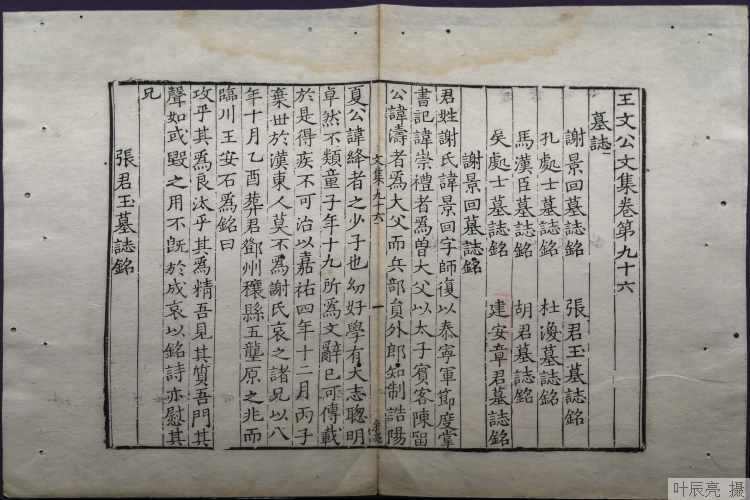 王文公文集卷第九十六
墓誌
謝景回墓誌銘 張君玉墓誌銘
孔處士墓誌銘 杜濅墓誌銘
馬漢臣墓誌銘 胡君墓誌銘
矦處士墓誌銘 建安章君墓誌銘
謝景回墓誌銘
君姓謝氏諱景回字師復以泰寧軍節度掌
書記諱崇禮者爲曾大父以太子賓客陳留
公諱濤者爲大父而兵部貟外郎知制誥陽
文集九十六
一
夏公諱絳者之少子也幼好學有大志聰明
卓然不類童子年十九所爲文辭已可傳載
於是得疾不可治以嘉祐四年十二月丙子
棄世於漢東人莫不爲謝氏哀之諸兄以八
年十月乙酉葬君鄧州穰縣五壟原之兆而
臨川王安石爲銘曰
攻乎其爲良汰乎其爲精吾見其質吾門其
聲如或毀之用不旣於成哀以銘詩亦慰其
兄
張君玉墓誌銘
叶辰亮 摄